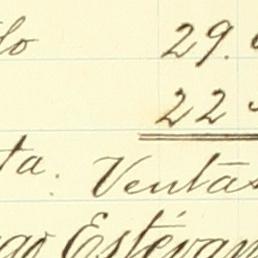 lo 29.
22
ta. Ventas
Estévan